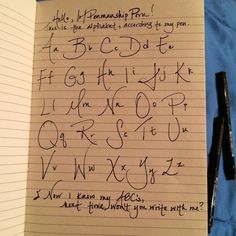 Hello, /r/Penmanship Porn!
This is the alphabet, according to my pen.
Aa Bb Cc Dd Ee
Ff Gg Hh Ii Jj Kk
Ll Mm Nn Oo Pp
Qq Rr Ss Tt Uu
Vv Ww Xx Yy Zz
Now I know my ABCs,
next time, won't you write with me?